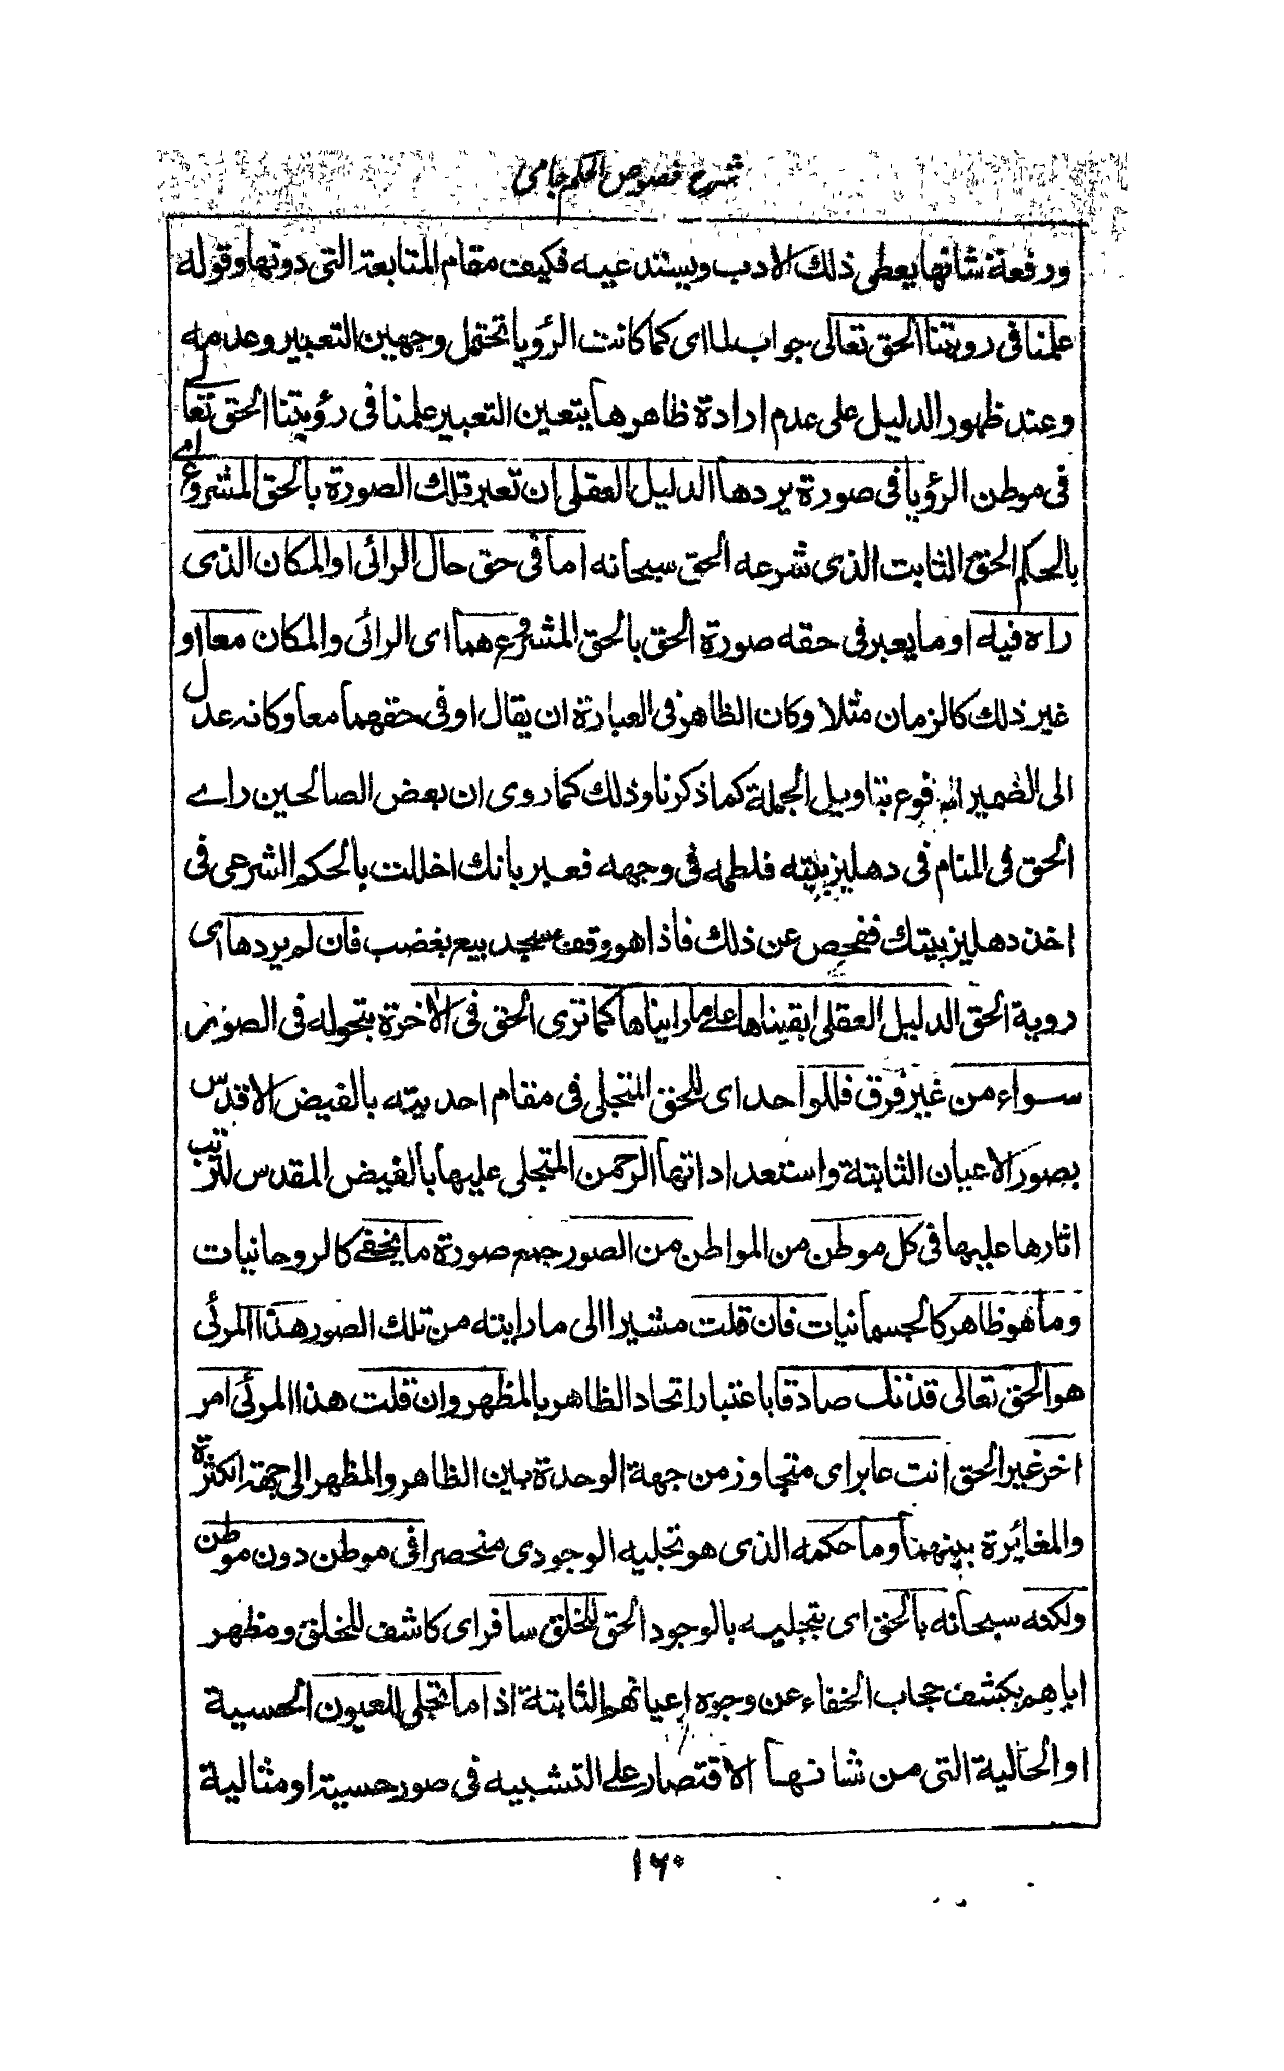 شرح فصوص الحكم جامى
ورفعة شانها يعطى ذلك الادب ويستدعيه فكيف مقام المتابعة التى دونها وقوله
علمنا فى رويتنا الحق تعالى جواب لما اى كما كانت الرؤيا تحتمل وجهين التعبير وعدمه
وعند ظهور الدليل على عدم ارادة ظاهرها يتعين التعبير علمنا فى رؤيتنا الحق تعالے
فى موطن الرؤيا فى صورة يردها الدليل العقلى ان تعبر تلك الصورة بالحق المشروع اے
بالحكم الحق الثابت الذى شرعه الحق سبحانه اما فى حق حال الرائى او المكان الذى
راه فيه او ما يعبر فى حقه صورة الحق بالحق المشروع هما اى الرائى والمكان معا او
غير ذلك كالزمان مثلا وكان الظاهر فى العبارة ان يقال او فى حقهما معا وكانه عدل
الى الضمير المرفوع بتاويل الجملة كما ذكرنا وذلك كما روى ان بعض الصالحين راے
الحق فى المنام فى دهليز بيته فلطمه فى وجهه فعبر بانك اخللت بالحكم الشرعى فى
اخذ دهليز بيتك ففحص عن ذلك فاذا هو وقف مسجد بيع بغضب فان لم يردها اى
روية الحق الدليل العقلى ابقيناها على ما رايناها كما نرى الحق فى الاخرة بتحوله فى الصور
سواء من غير فرق فللواحد اى للحق المتجلى فى مقام احديته بالفيض الاقدس
بصور الاعيان الثابتة واستعداداتها الرحمن المتجلى عليها بالفيض المقدس لترتب
اثارها عليها فى كل موطن من المواطن من الصور جمع صورة ما يخفے كالروحانيات
وما هو ظاهر كالجسمانيات فان قلت مشيرا الى ما رايته من تلك الصور هذا المرئى
هو الحق تعالى قد تك صادقا باعتبار اتحاد الظاهر بالمظهر وان قلت هذا المرئى امر
اخر غير الحق انت عابر اى متجاوز من جهة الوحدة بين الظاهر والمظهر الى جهة الكثرة
والمغائرة بينهما وما حكمه الذى هو تجليه الوجودى منحصرا فى موطن دون موطن
ولكنه سبحانه بالحق اى بتجليه بالوجود الحق للخلق سافر اى كاشف للخلق ومظهر
اياهم بكشف حجاب الخفاء عن وجوه اعيانهم الثابتة اذا ما تجلى للعيون الحسية
او الخالية التى من شانها الاقتصار على التشبيه فى صور حسية او مثالية
۱۶۰